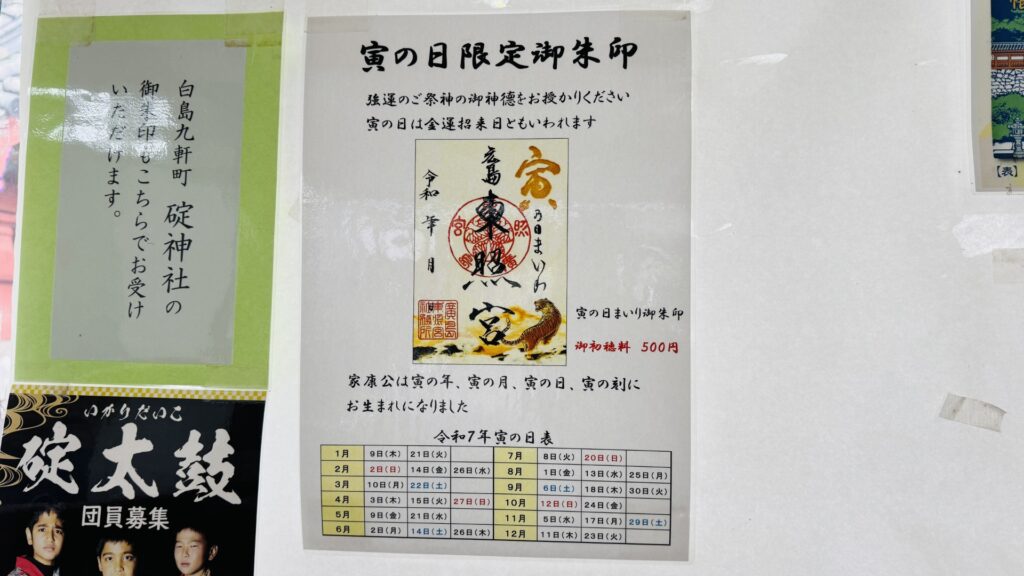 白島九軒町 碇神社の
御朱印もこちらでお受け
いただけます。
いかりだいこ
碇太鼓
団員募集
寅の日限定御朱印
強運のご祭神の御神徳をお授かりください
寅の日は金運招来日ともいわれます
寅
の日まいり
広島東照宮
令和 年 月
寅の日まいり御朱印
御初穂料 500円
家康公は寅の年、寅の月、寅の日、寅の刻に
お生まれになりました
令和7年寅の日表
1月 9日(木) 21日(火)
2月 2日(日) 14日(金) 26日(水)
3月 10日(月) 22日(土)
4月 3日(木) 15日(火) 27日(日)
5月 9日(金) 21日(水)
6月 2日(月) 14日(土) 26日(木)
7月 8日(火) 20日(日)
8月 1日(金) 13日(水) 25日(月)
9月 6日(土) 18日(木) 30日(火)
10月 12日(日) 24日(金)
11月 5日(水) 17日(月) 29日(土)
12月 11日(木) 23日(火)
【表】